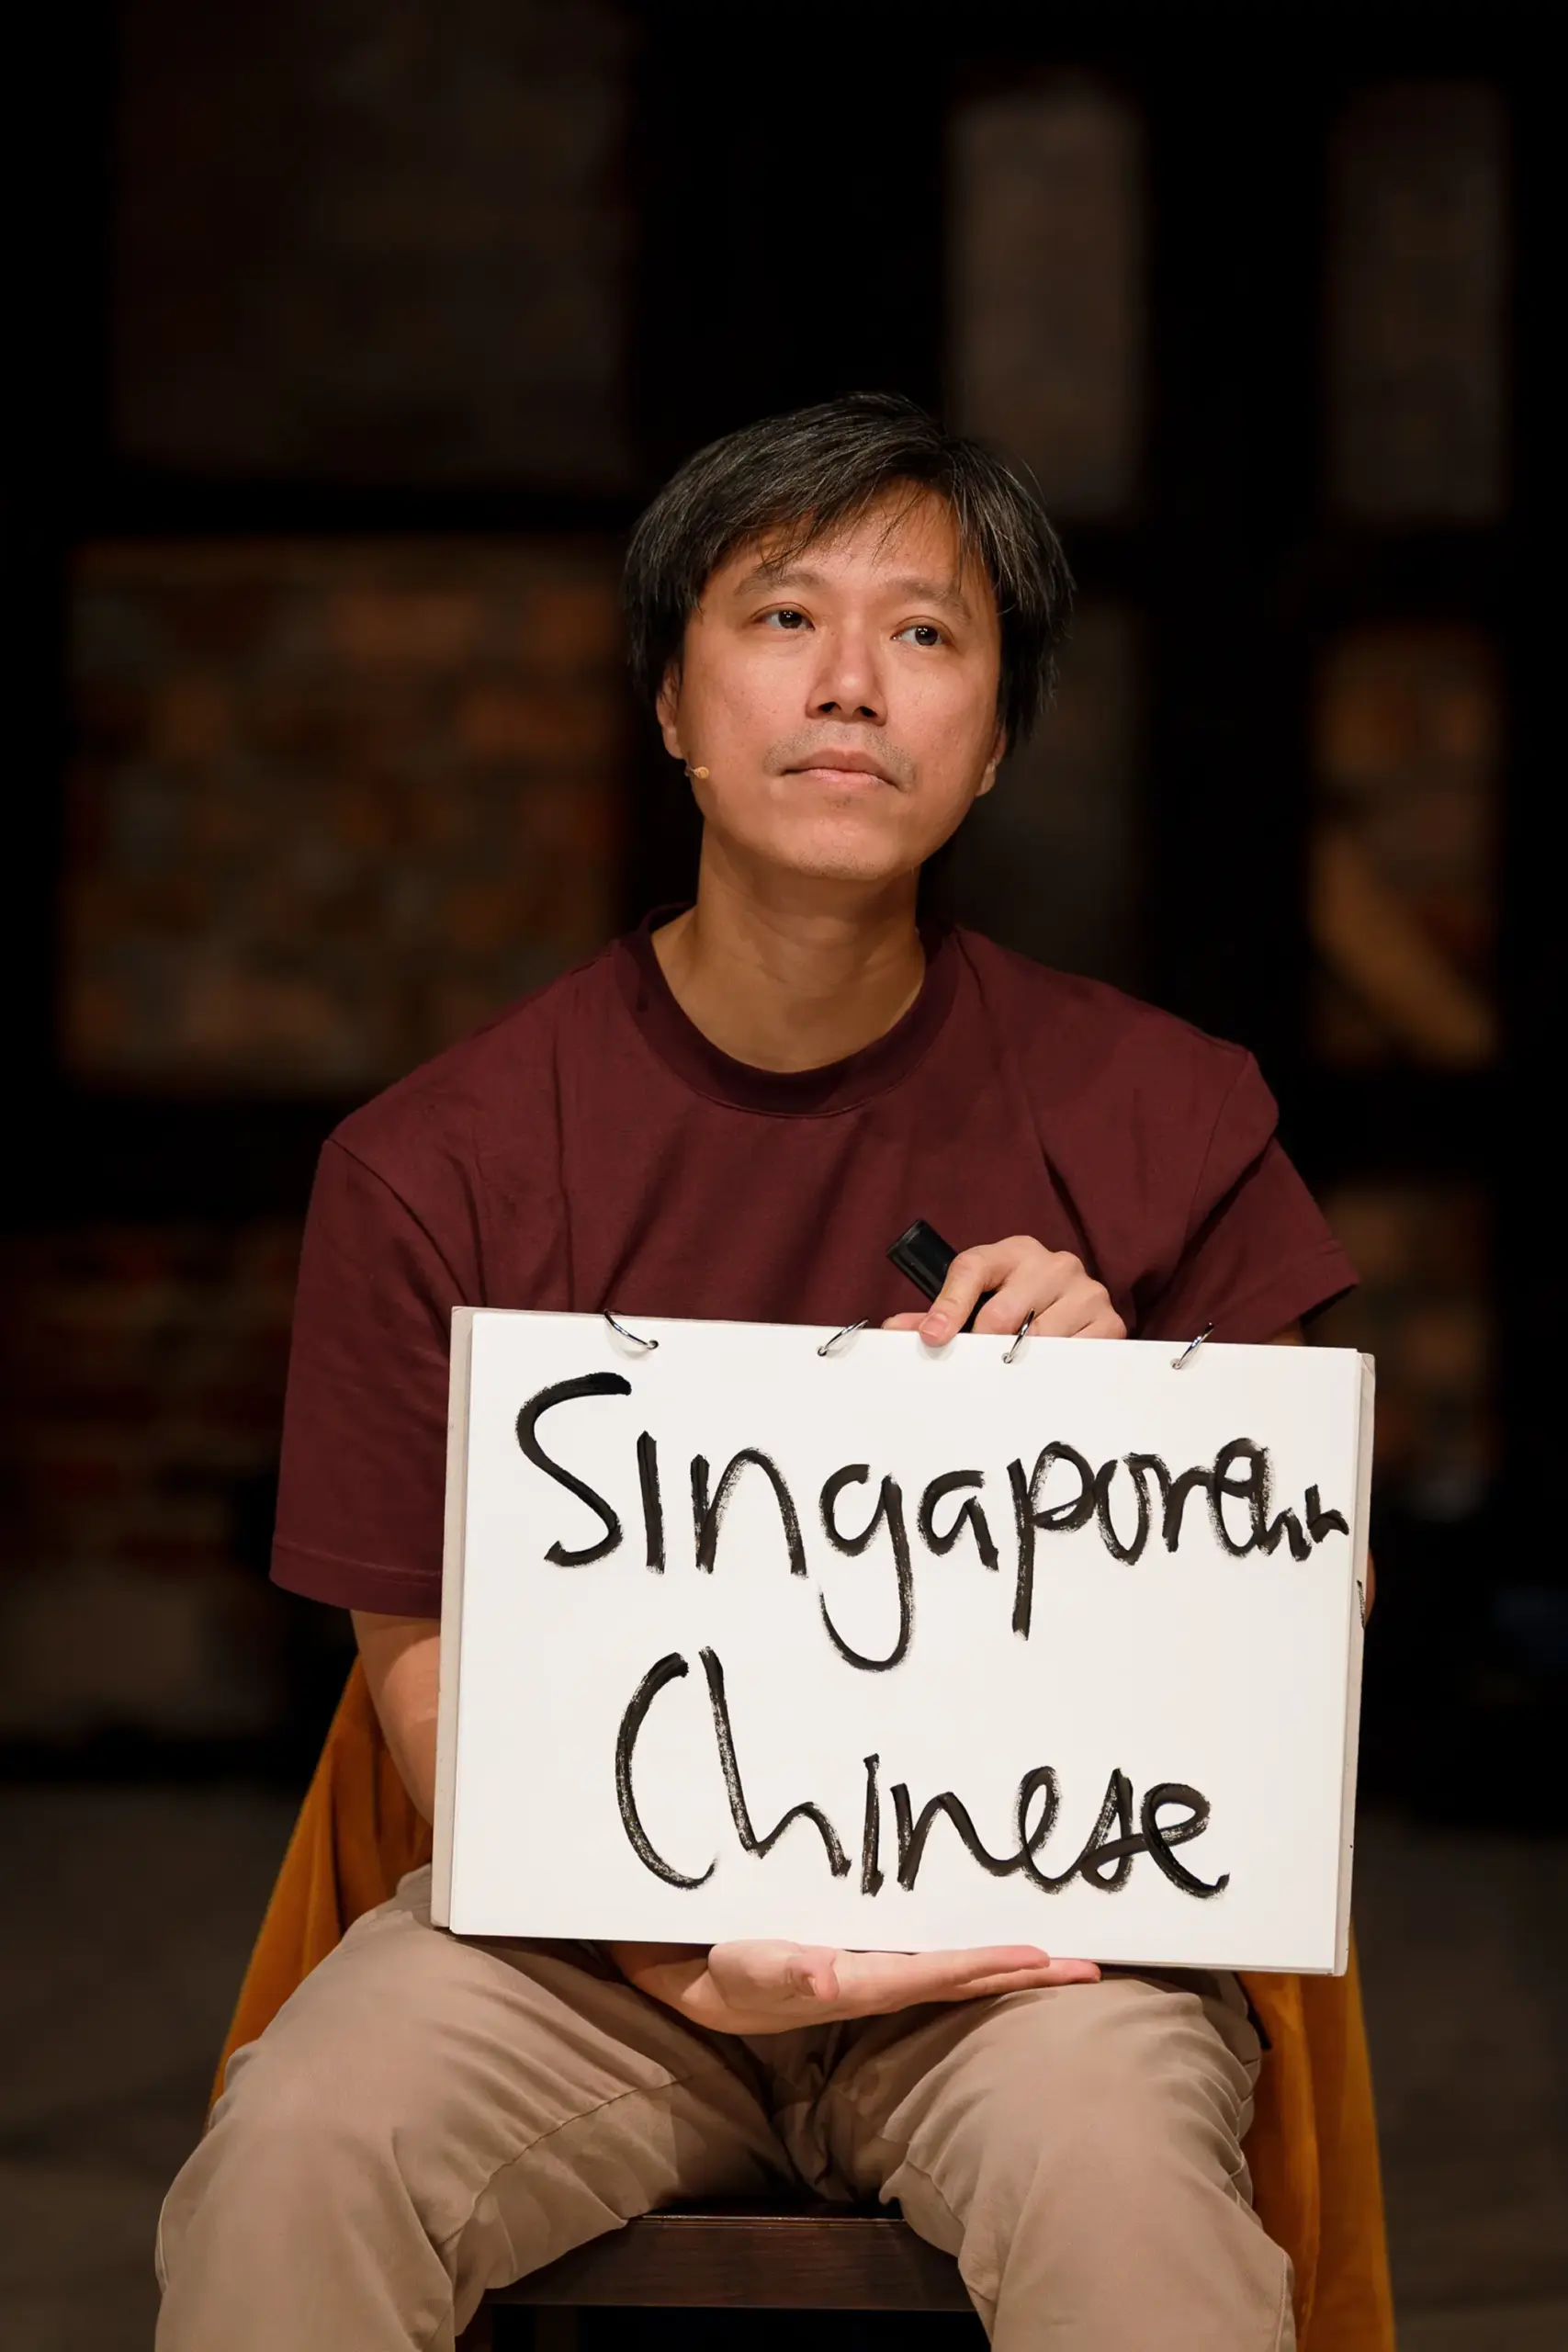 Singaporean
Chinese